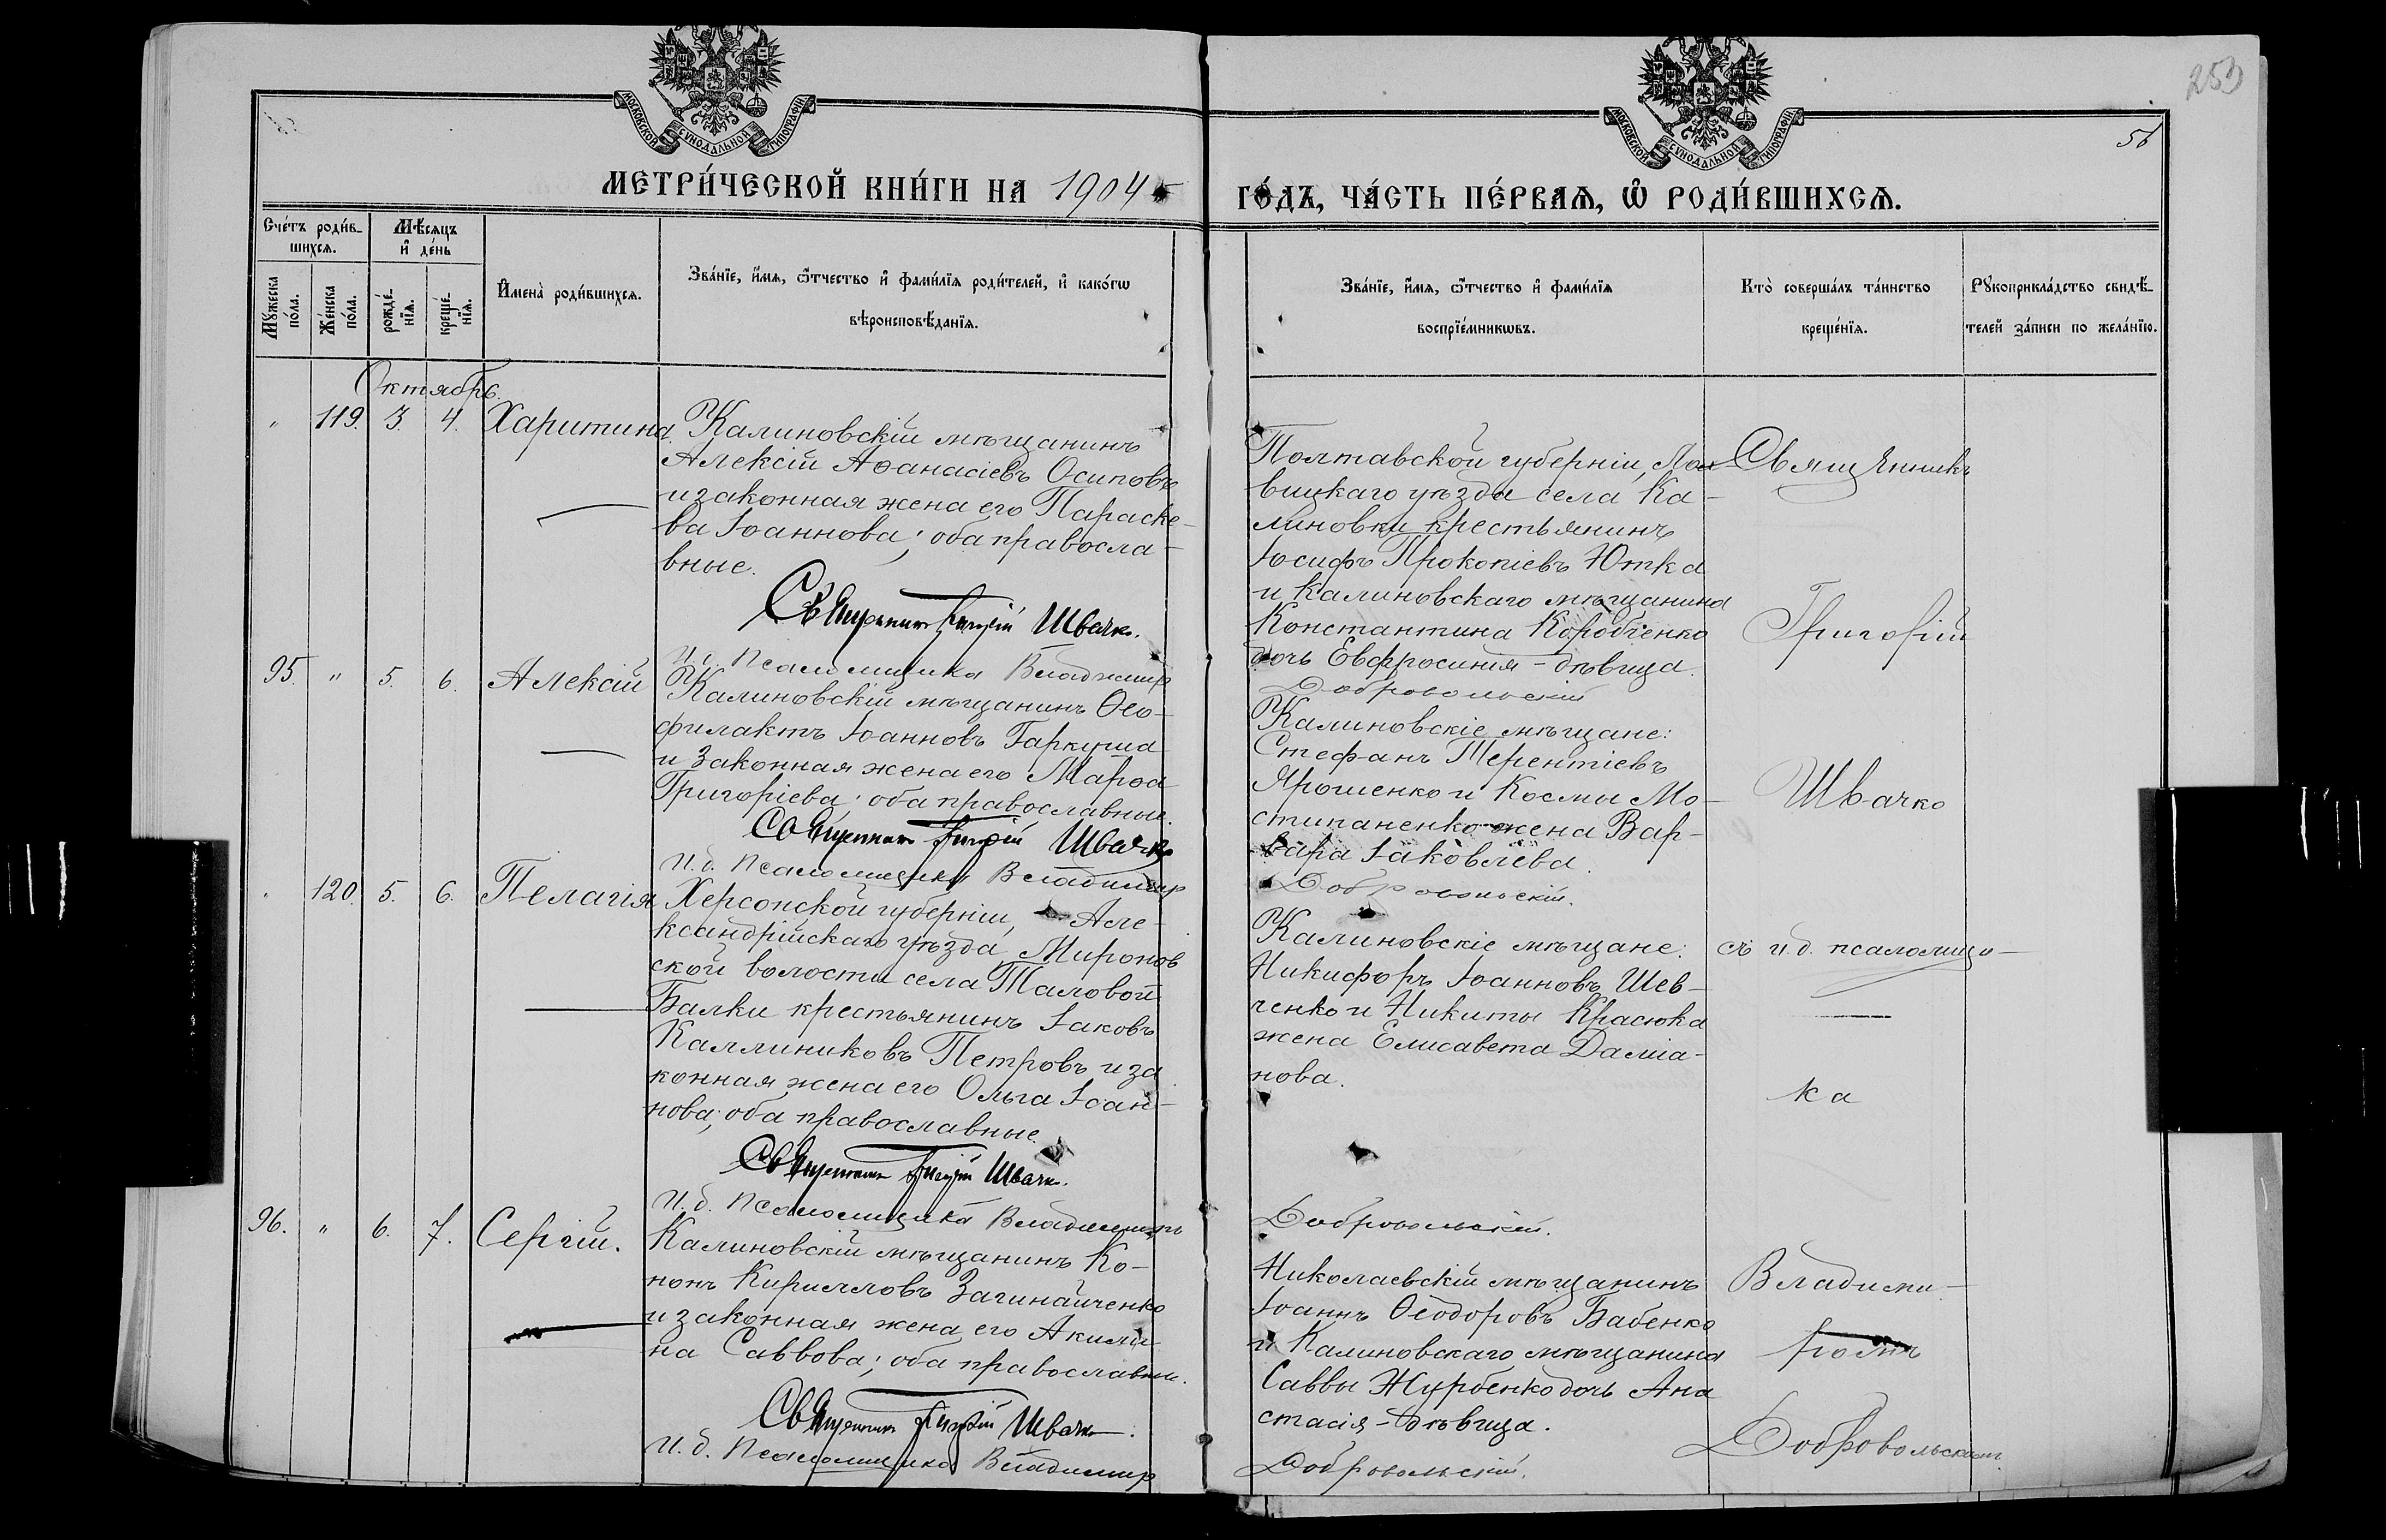 253
56
МОСКОВСКОЙ СѴНОДАЛЬНОЙ ТИПОГРАФІИ
МОСКОВСКОЙ СѴНОДАЛЬНОЙ ТИПОГРАФІИ
МЕТРИ́ЧЕСКОЙ КНИ́ГИ НА 1904
ГО́ДЪ, ЧА́СТЬ ПЕ́РВАѦ, Ѽ РОДИ́ВШИХСѦ.
Сче́тъ роди́в-
шихсѧ.
Мѣ́сяцъ
и҆ де́нь
Мꙋ́жеска
по́ла.
Же́нска
по́ла.
рожде́-
нїѧ.
креще́-
нїѧ.
И҆мена̀ роди́вшихсѧ.
Зва́нїе, и҆́мѧ, ѻ҆́тчество и҆ фами́лїѧ роди́телей, и҆ како́гѡ
вѣроисповѣ́данїѧ.
Зва́нїе, и҆́мѧ, ѻ҆́тчество и҆ фами́лїѧ
воспрїе́мникѡвъ.
Кто̀ соверша́лъ та́инство
креще́нїѧ.
Рꙋкоприкла́дство свидѣ́-
телей за́писи по жела́нїю.
Октябрь.
" 119. 3. 4. Харитина
Калиновскій мѣщанинъ
Алексій Аѳанасіевъ Осиповъ
и законная жена его Параске-
ва Іоаннова; оба правосла-
вные.
Священникъ Григорій Швачко.
И. д. Псаломщика Владимир
Полтавской губерніи, Лох-
вицкаго уѣзда села Ка-
линовки крестьянинъ
Іосифъ Прокопіевъ Ютка
и Калиновскаго мѣщанина
Константина Коробченко
дочь Евфросинія - дѣвица.
Добровольскій
95. " 5. 6. Алексій
Калиновскій мѣщанинъ Ѳео-
филактъ Іоанновъ Гаркуша
и законная жена его Марѳа
Григоріева; оба православные.
Священникъ Григорій Швачко
И. д. Псаломщика Владимир
Калиновскіе мѣщане:
Стефанъ Терентіевъ
Ярошенко и Космы Мо-
стипаненко жена Вар-
вара Іаковлева.
Добровольскій.
" 120. 5. 6. Пелагія
Херсонской губерніи, Але-
ксандрійскаго уѣзда Миронов
ской волости села Таловой
Балки крестьянинъ Іаковъ
Каллиниковъ Петровъ и за
конная жена его Ольга Іоан-
нова; оба православные.
Священникъ Григорій Швачко.
И. д. Псаломщика Владимиръ
Калиновскіе мѣщане:
Никифоръ Іоанновъ Шев-
ченко и Никиты Красюка
жена Елисавета Даміа-
нова.
Добровольскій.
96. " 6. 7. Сергій.
Калиновскій мѣщанинъ Ко-
нонъ Кирилловъ Загинайченко
и законная жена его Акили-
на Саввова; оба православные.
Священникъ Григорій Швачко.
И. д. Псаломщика Владимир
Николаевскій мѣщанинъ
Іоаннъ Ѳеодоровъ Бабенко
и Калиновскаго мѣщанина
Саввы Журбенко дочь Ана
стасія - дѣвица.
Добровольскій.
Священникъ
Григорій
Швачко
съ и. д. псаломщи-
ка
Владими-
ромъ
Добровольскимъ.